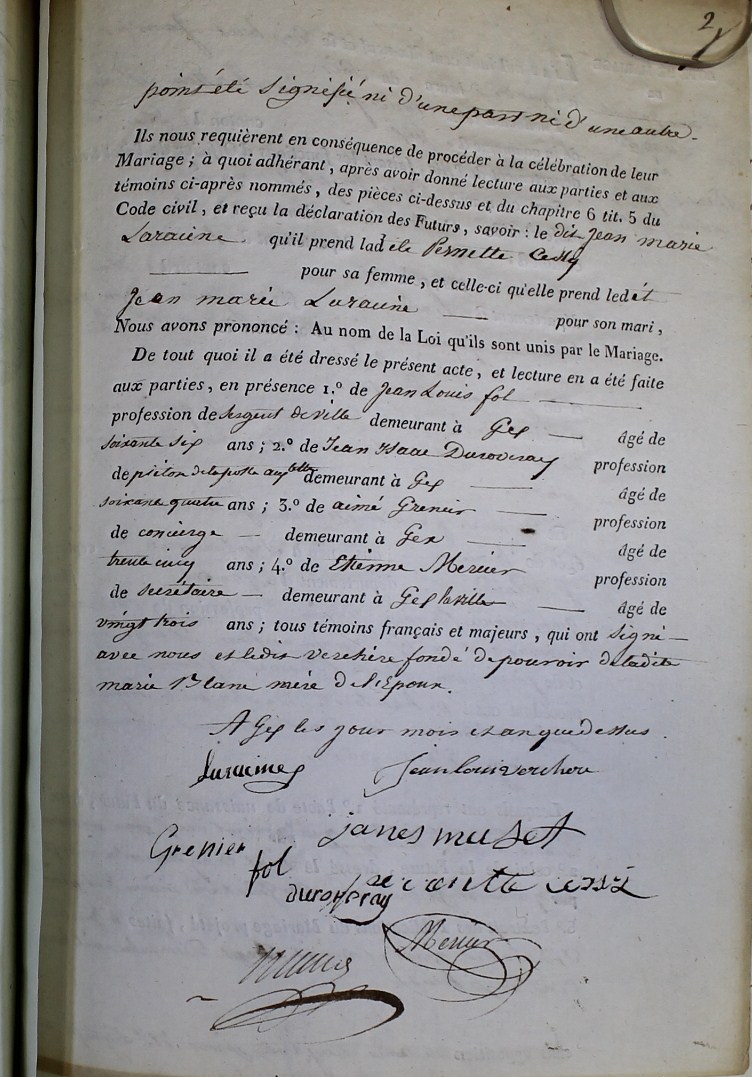 2
point été signifié ni d'une part ni d'une autre.
Ils nous requièrent en conséquence de procéder à la célébration de leur
Mariage ; à quoi adhérant, après avoir donné lecture aux parties et aux
témoins ci-après nommés, des pièces ci-dessus et du chapitre 6 tit. 5 du
Code civil, et reçu la déclaration des Futurs, savoir : le dit Jean marie
Laracine qu'il prend lad ite Pernette Cessy
pour sa femme, et celle-ci qu'elle prend led it
Jean marie Laracine pour son mari,
Nous avons prononcé : Au nom de la Loi qu'ils sont unis par le Mariage.
De tout quoi il a été dressé le présent acte, et lecture en a été faite
aux parties, en présence 1.° de Jean Louis fol
profession de sergent de ville demeurant à Gex âgé de
soixante six ans ; 2.° de Jean Isaac Duroveray profession
de piéton de la poste aux lettres demeurant à Gex âgé de
soixante quatre ans ; 3.° de aimé Grenier profession
de concierge demeurant à Gex âgé de
trente cinq ans ; 4.° de Etienne Mercier profession
de secrétaire demeurant à Gex la ville âgé de
vingt trois ans ; tous témoins français et majeurs, qui ont signé
avec nous et ledit verchère fondé de pouvoir de ladite
marie mère de l'Epoux.
A Gex les jour mois et an que dessus.
laracine Jean louis verchere
Grenier fol
duroveray cessi
Mercier